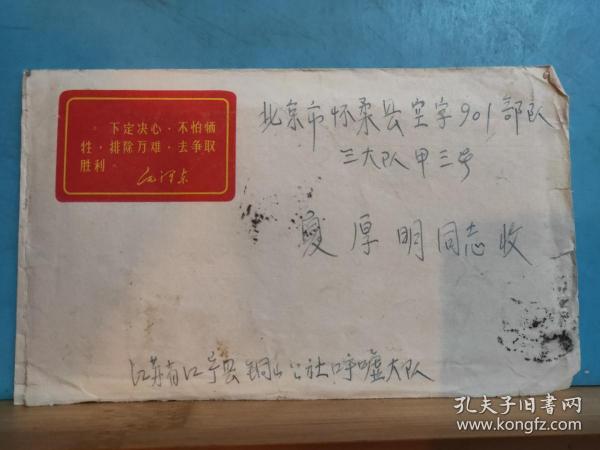 下定决心·不怕牺
牲·排除万难·去争取
胜利
毛泽东
北京市怀柔县空字901部队
三大队甲三号
夏厚明同志收
江苏省江宁县铜山公社呼嘘大队
孔夫子旧书网
www.kongfz.com